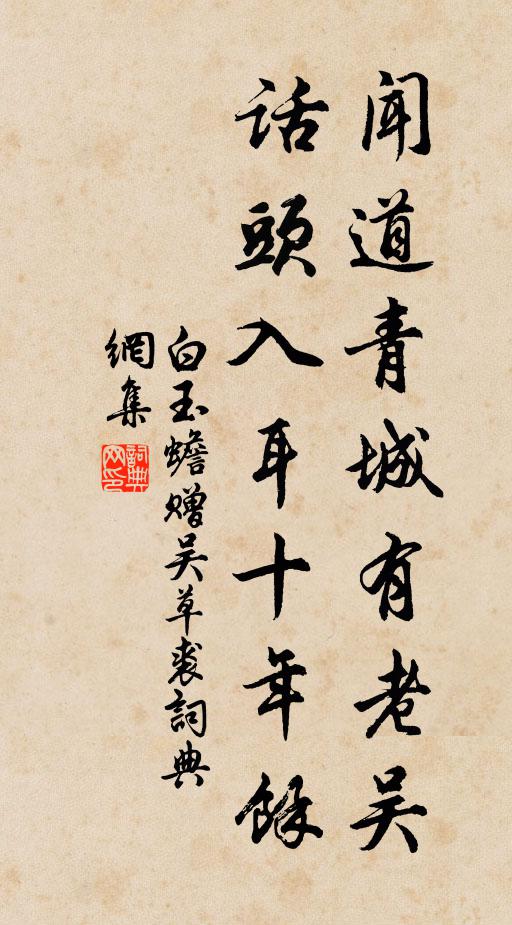 闻道青城有老吴
话頭入耳十年餘
白玉蟾赠吴草裘詞典
網集
詞典网印